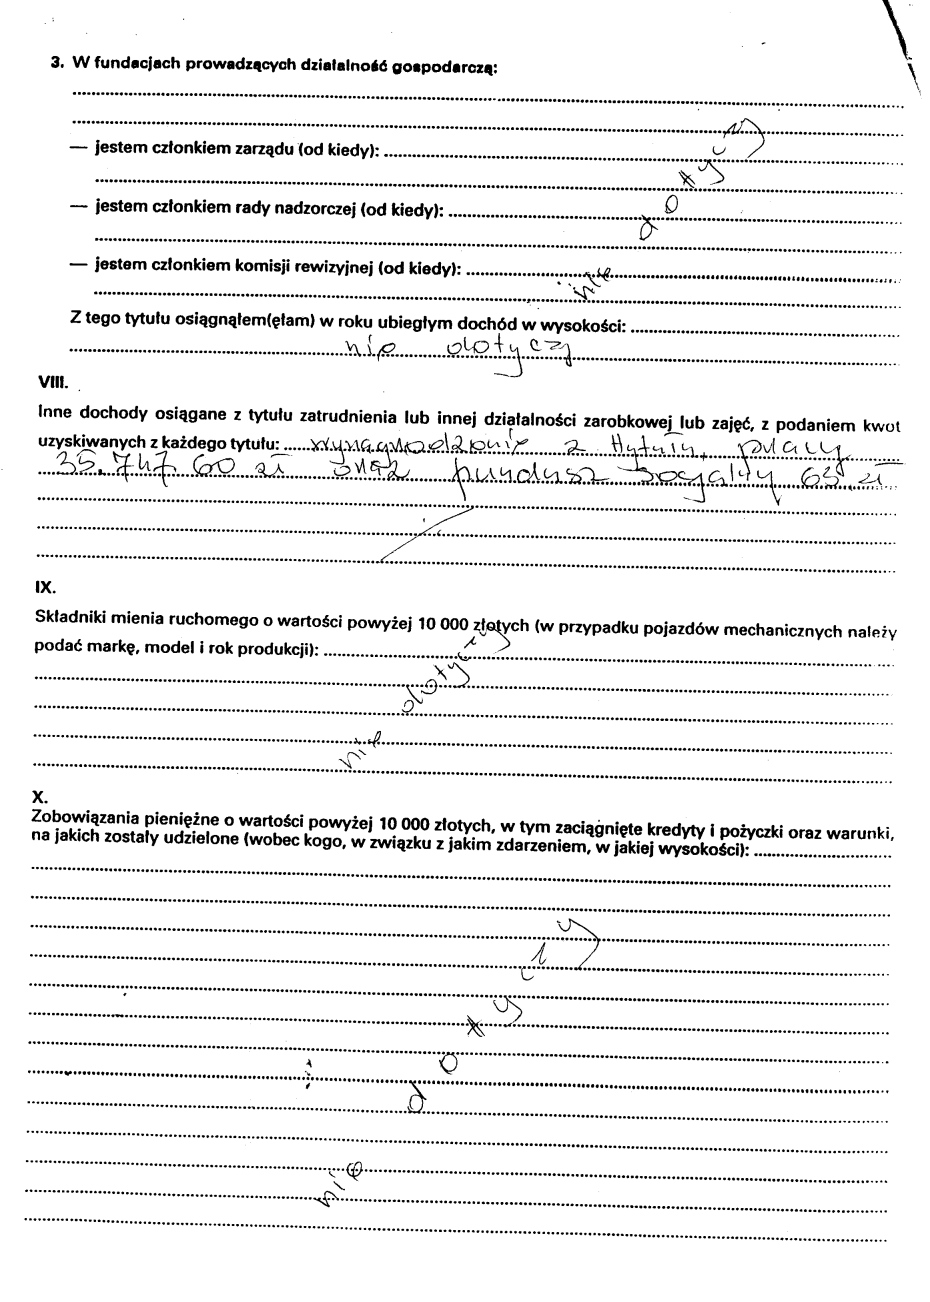 3. W fundacjach prowadzących działalność gospodarczą:
— jestem członkiem zarządu (od kiedy):
— jestem członkiem rady nadzorczej (od kiedy):
— jestem członkiem komisji rewizyjnej (od kiedy):
nie dotyczy
Z tego tytułu osiągnąłem(ęłam) w roku ubiegłym dochód w wysokości:
nie dotyczy
VIII.
Inne dochody osiągane z tytułu zatrudnienia lub innej działalności zarobkowej lub zajęć, z podaniem kwot
uzyskiwanych z każdego tytułu: wynagrodzenie z tytułu pracy
35.747,60 zł oraz fundusz socjalny 65 zł
IX.
Składniki mienia ruchomego o wartości powyżej 10 000 złotych (w przypadku pojazdów mechanicznych należy
podać markę, model i rok produkcji):
nie dotyczy
X.
Zobowiązania pieniężne o wartości powyżej 10 000 złotych, w tym zaciągnięte kredyty i pożyczki oraz warunki,
na jakich zostały udzielone (wobec kogo, w związku z jakim zdarzeniem, w jakiej wysokości):
nie dotyczy